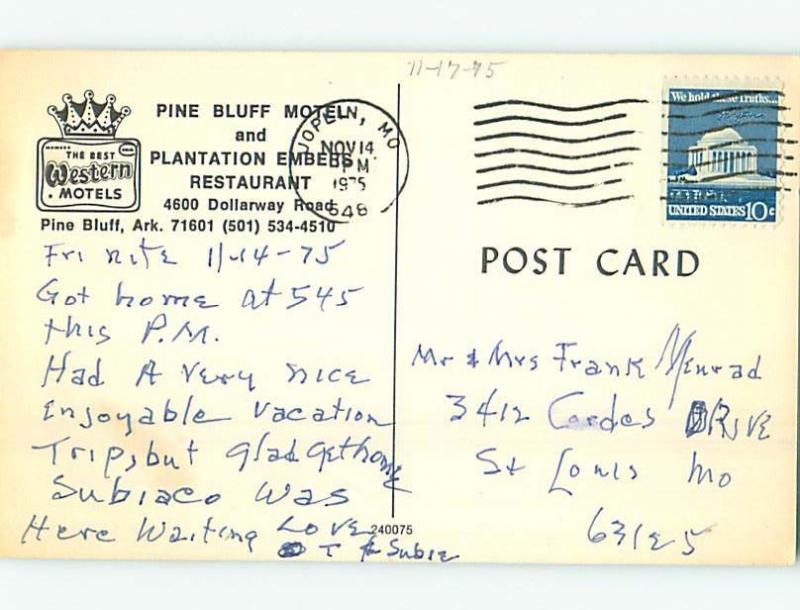 11-17-75
MEMBER
THE BEST
Western
MOTELS
PINE BLUFF MOTELN
and
PLANTATION EMBERS
RESTAURANT
4600 Dollarway Road
Pine Bluff, Ark. 71601 (501) 534-4510
JOPLIN, MO
NOV 14
PM
1975
648
We hold these Truths...
UNITED STATES 10c
POST CARD
Fri nite 11-14-75
Got home at 545
this P.M.
Had A very nice
Enjoyable vacation
Trip, but glad get home
Subiaco was
Here Waiting Love
T & Subie
240075
Mr & Mrs Frank Menrad
3412 Cordes DRIVE
St Louis Mo
63125